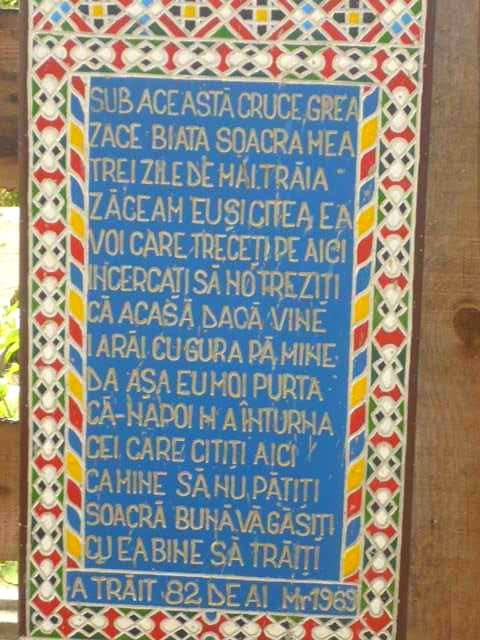 SUB ACEASTĂ CRUCE GREA
ZACE BIATA SOACRA MEA
TREI ZILE DE MAI TRĂIA
ZĂCEAM EU SI CITEA EA
VOI CARE TRECEȚI PE AICI
INCERCAȚI SĂ NO TREZITI
CĂ ACASĂ DACĂ VINE
IARĂI CU GURA PĂ MINE
DA AȘA EU MOI PURTA
CĂ-NAPOI N A ÎNTURNA
CEI CARE CITIȚI AICI
CA MINE SĂ NU PĂȚIȚI
SOACRĂ BUNĂ VĂ GĂSIȚI
CU EA BINE SĂ TRĂIȚI
A TRĂIT 82 DE AI Mr 1969